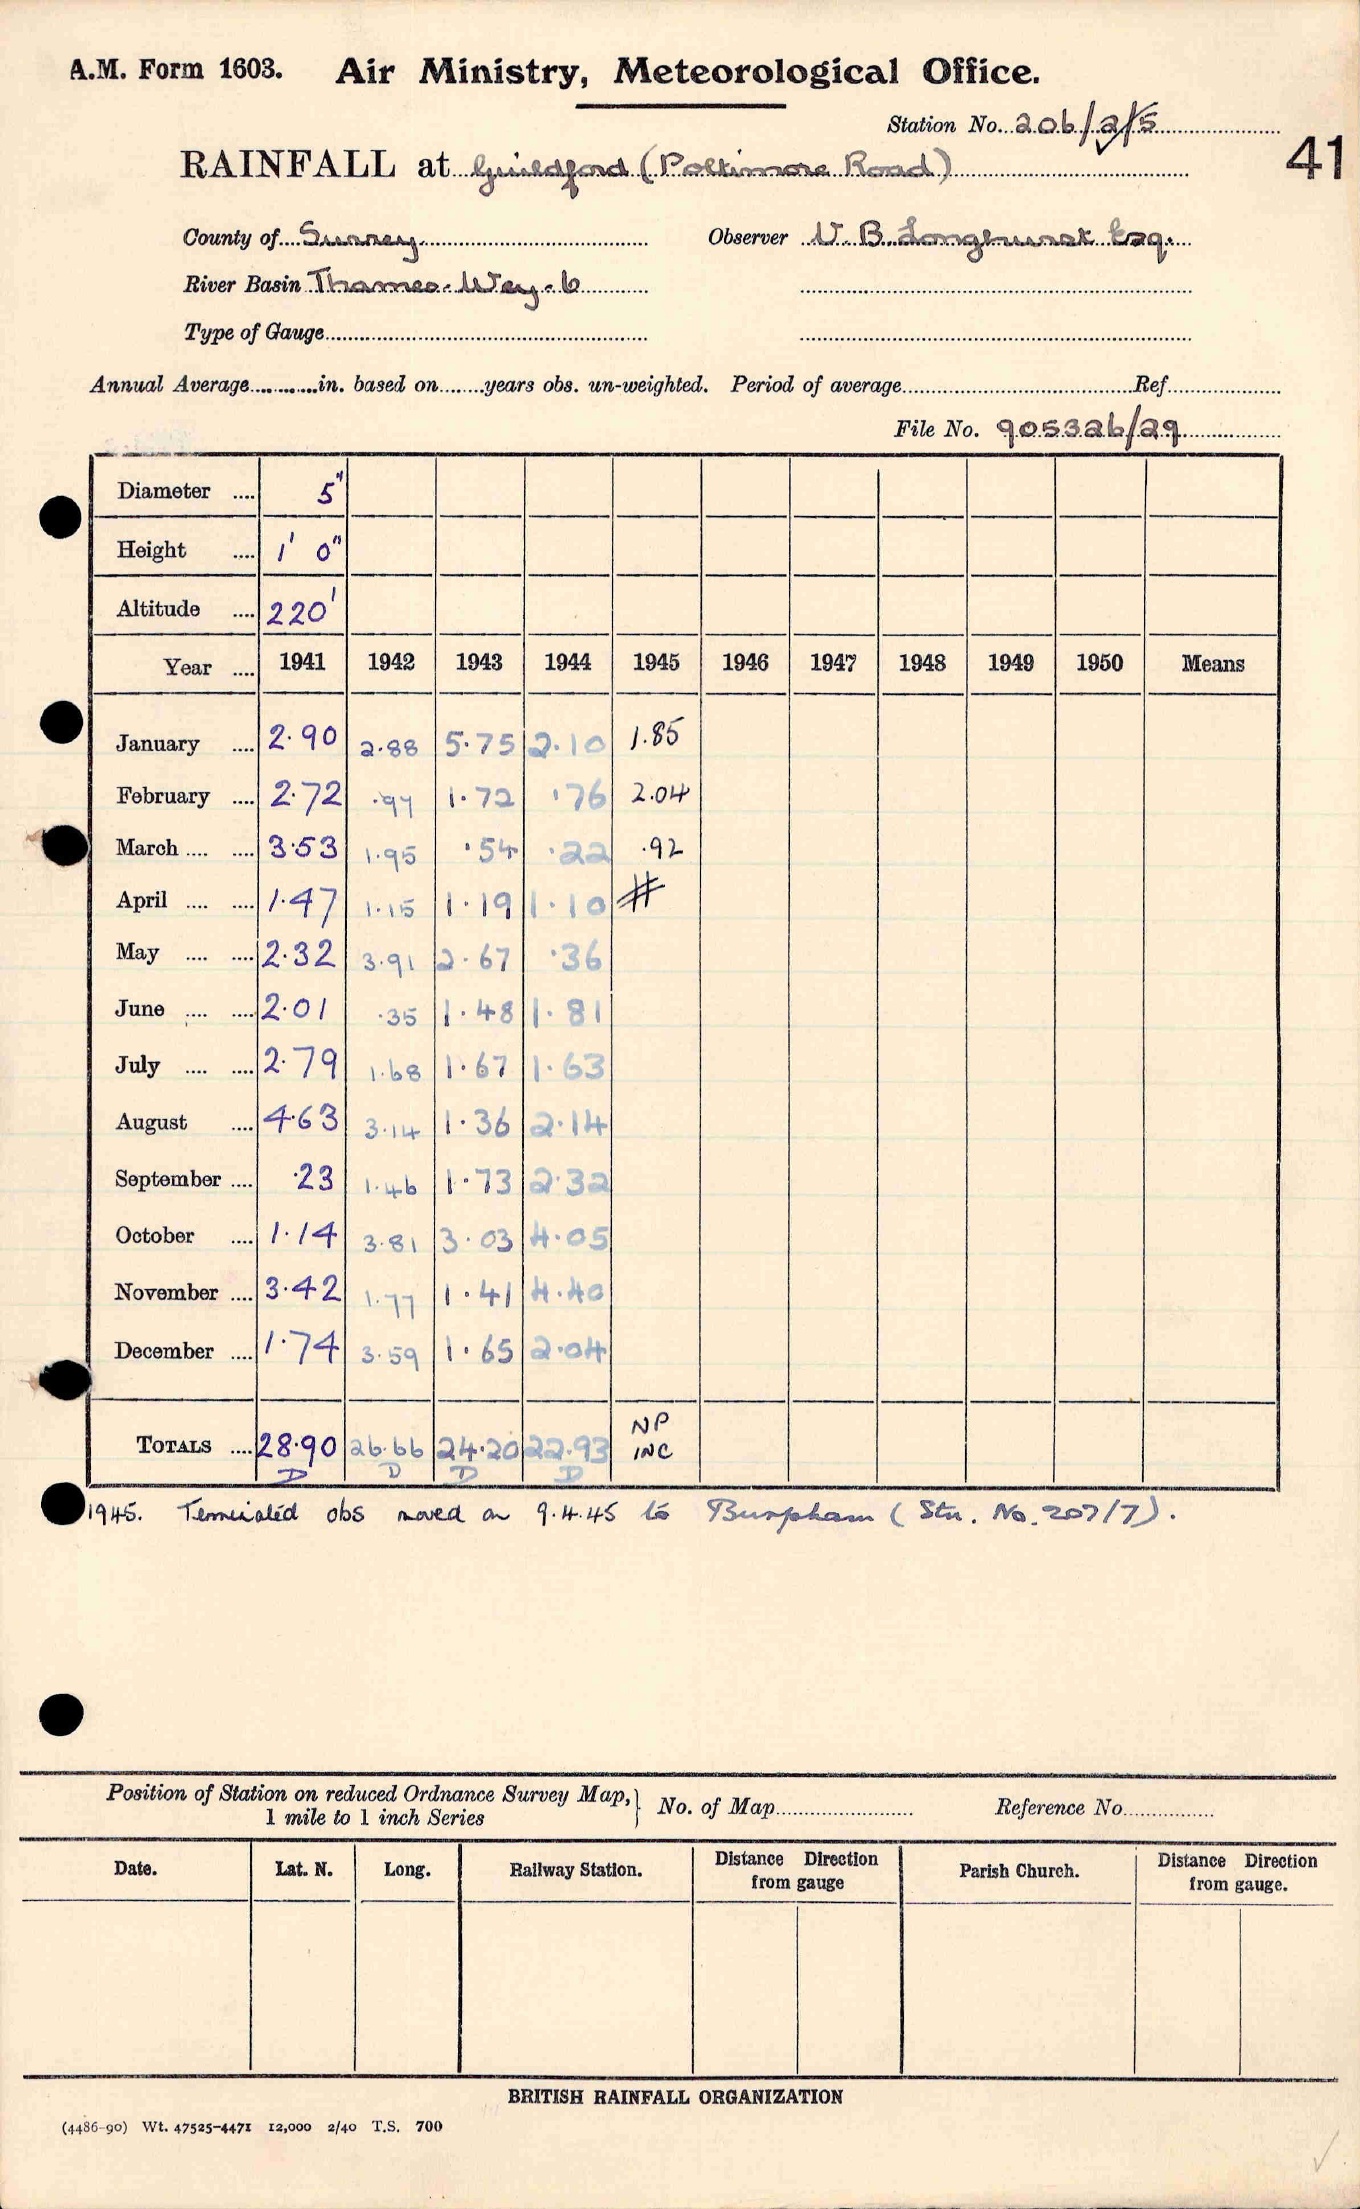 A.M. Form 1603. Air Ministry, Meteorological Office.
Station No. 206/2/5
41
RAINFALL at Guildford (Poltimore Road)
County of Surrey Observer V. B. Longhurst Esq.
River Basin Thames-Wey-6
Type of Gauge
Annual Average in. based on years obs. un-weighted. Period of average Ref
File No. 905326/29
Diameter .... 5"
Height .... 1' 0"
Altitude .... 220'
Year .... 1941 1942 1943 1944 1945 1946 1947 1948 1949 1950 Means
January .... 2.90 2.88 5.75 2.10 1.85
February .... 2.72 .97 1.72 .76 2.04
March .... .... 3.53 1.95 .54 .22 .92
April .... .... 1.47 1.15 1.19 1.10 #
May .... .... 2.32 3.91 2.67 .36
June .... .... 2.01 .35 1.48 1.81
July .... .... 2.79 1.68 1.67 1.63
August .... 4.63 3.14 1.36 2.14
September .... .23 1.46 1.73 2.32
October .... 1.14 3.81 3.03 4.05
November .... 3.42 1.77 1.41 4.40
December .... 1.74 3.59 1.65 2.04
TOTALS .... 28.90 26.66 24.20 22.93 NP INC
D D D D
1945. obs moved on 9.4.45 to Burpham (Stn. No. 207/7).
Position of Station on reduced Ordnance Survey Map,
1 mile to 1 inch Series } No. of Map Reference No.
Date. Lat. N. Long. Railway Station. Distance Direction from gauge Parish Church. Distance Direction from gauge.
BRITISH RAINFALL ORGANIZATION
(4486-90) Wt. 47525-4471 12,000 2/40 T.S. 700